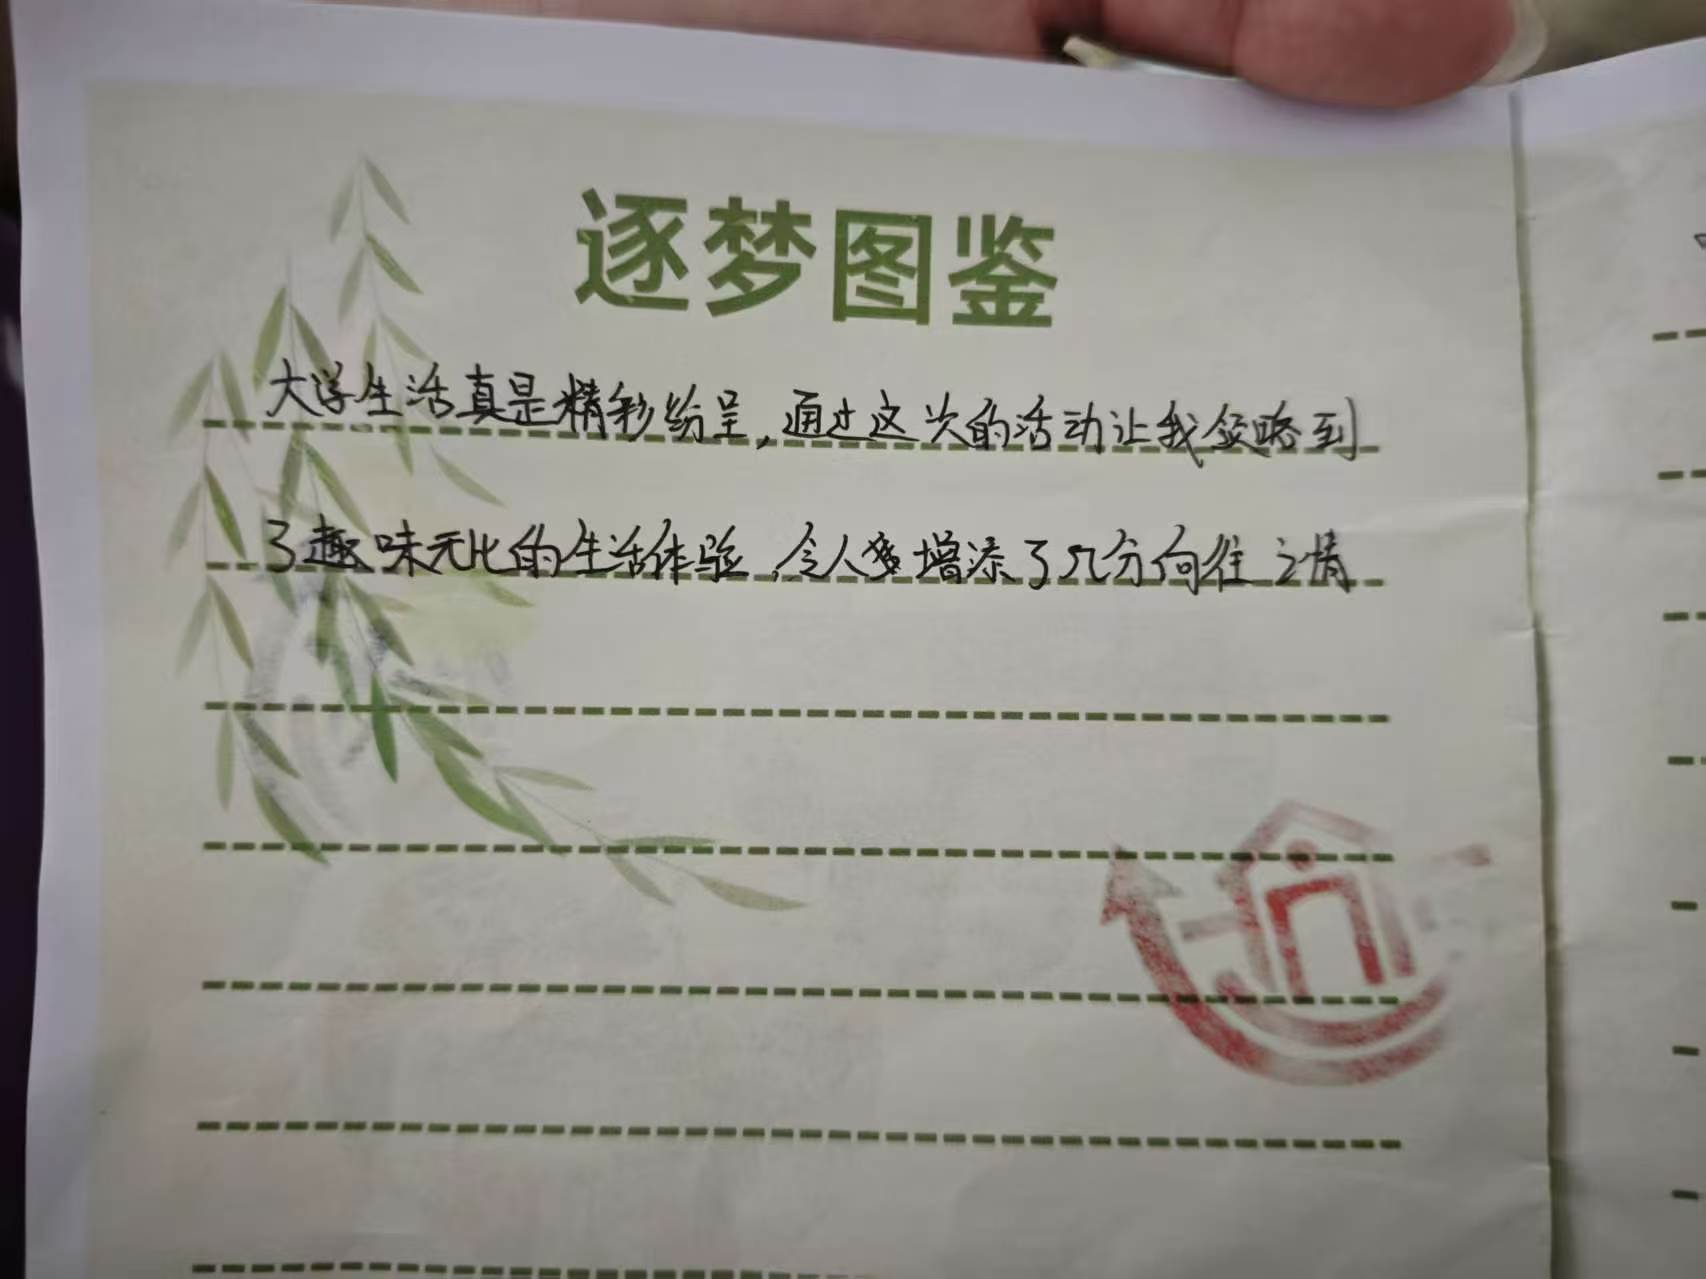 逐梦图鉴
大学生活真是精彩纷呈,通过这次的活动让我领略到
了趣味无比的生活体验,令人增添了几分向往之情